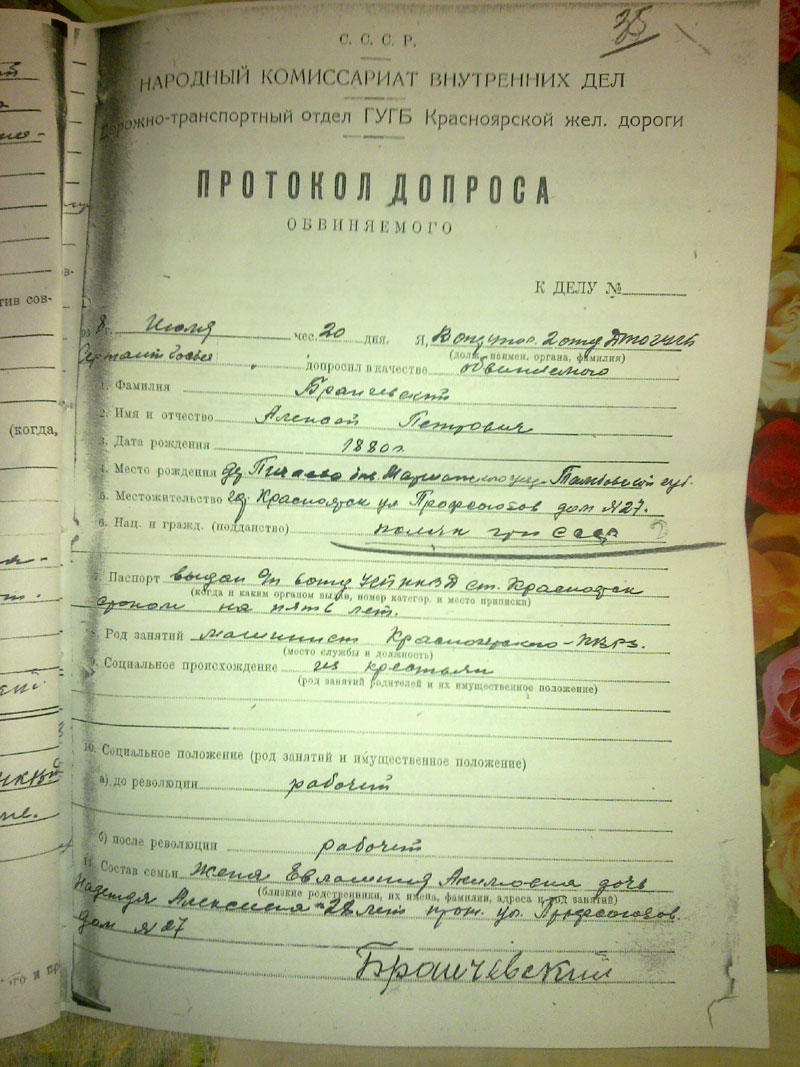 35
С. С. С. Р.
НАРОДНЫЙ КОМИССАРИАТ ВНУТРЕННИХ ДЕЛ
Дорожно-транспортный отдел ГУГБ Красноярской жел. дороги
ПРОТОКОЛ ДОПРОСА
ОБВИНЯЕМОГО
К ДЕЛУ №
8 г. Июля чес. 20 дня. Я,
(долж. наимен. органа, фамилия)
допросил в качестве обвиняемого
1. Фамилия Бранчевский
2. Имя и отчество Алексей Петрович
3. Дата рождения 1880 г.
4. Место рождения Тамбовской губ.
5. Местожительство гор. Красноярск ул Профсоюзов дом №27.
6. Нац. и гражд. (подданство) поляк гр. СССР
7. Паспорт выдан ст. Красноярск
(когда и каким органом выдан, номер категор. и место приписки)
сроком на пять лет.
8. Род занятий машинист Красноярского ПВРЗ.
(место службы и должность)
9. Социальное происхождение из крестьян
(род занятий родителей и их имущественное положение)
10. Социальное положение (род занятий и имущественное положение)
а) до революции рабочий
б) после революции рабочий
11. Состав семьи Жена Акимовна дочь
(близкие родственники, их имена, фамилии, адреса и род занятий)
Надежда лет прож. ул. Профсоюзов
дом №27
Бранчевский
тив сов-
(когда,